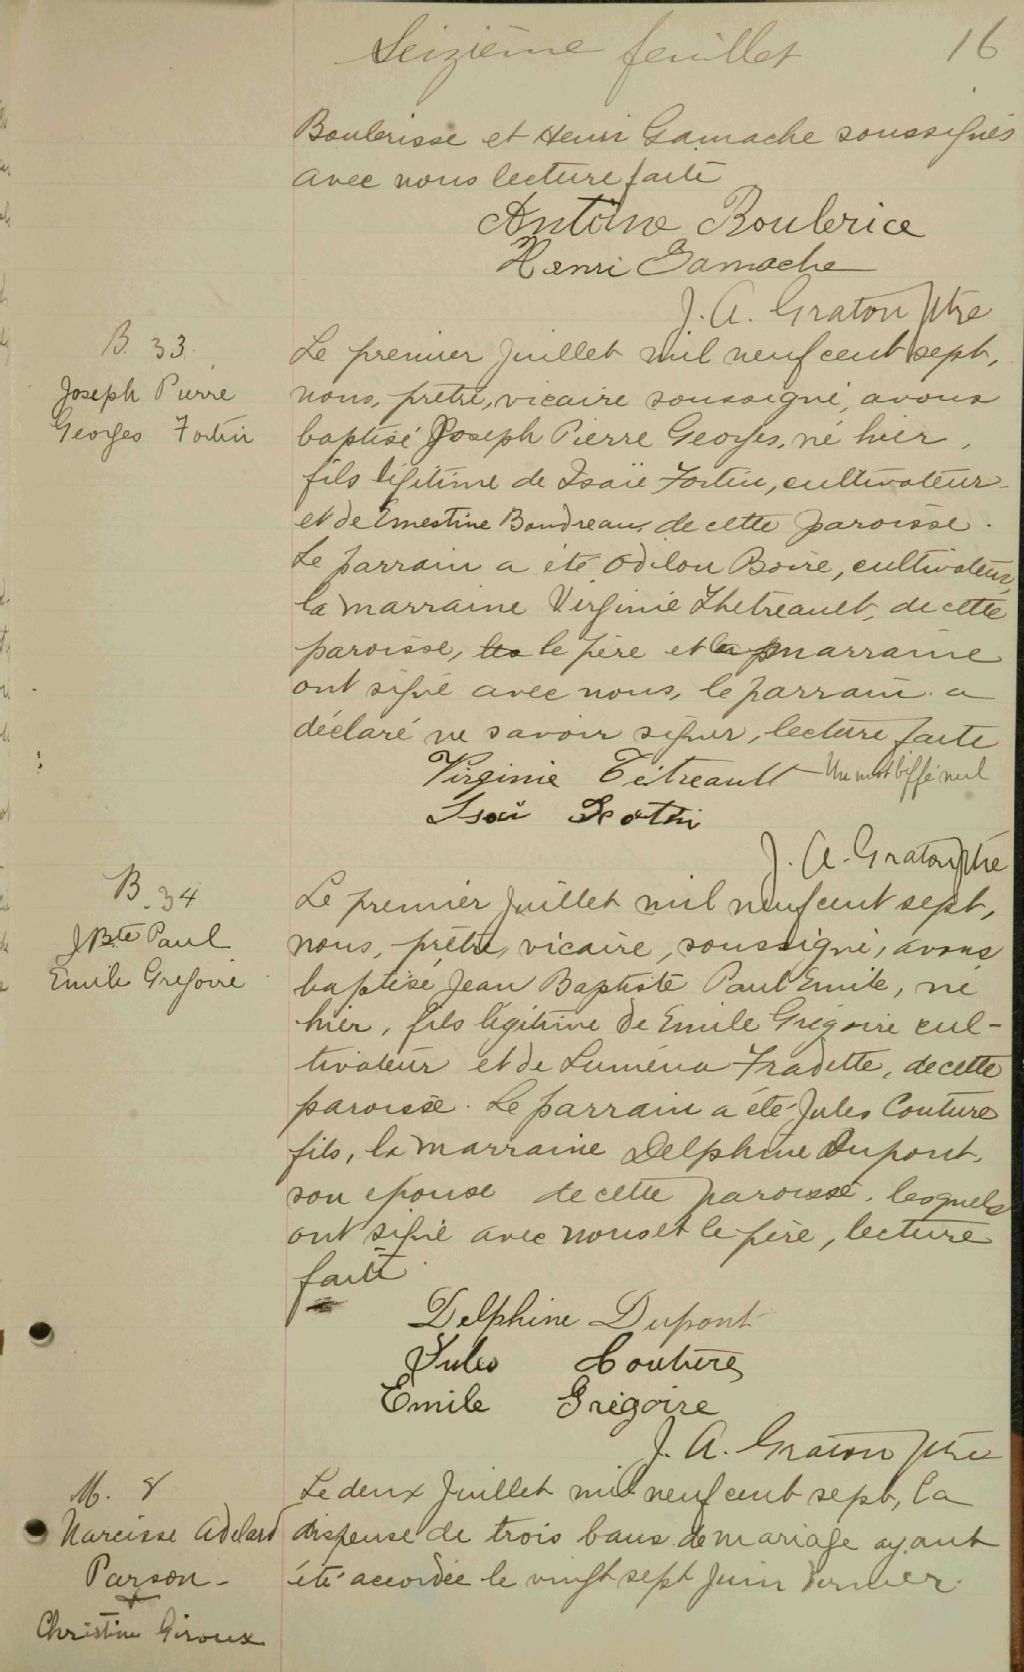 Seizième feuillet 16
Boulerisse et Henri Gamache soussignés
avec nous lecture faite
Antoine Boulerice
Henri Gamache
J. A. Graton Ptre
B. 33.
Joseph Pierre
Georges Fortin
Le premier Juillet mil neuf cent sept,
nous, prêtre, vicaire soussigné, avons
baptisé Joseph Pierre Georges, né hier,
fils légitime de Isaïe Fortin, cultivateur
et de Ernestine Boudreau, de cette paroisse.
Le parrain a été Odilon Boire, cultivateur,
la marraine Virginie Thetreault, de cette
paroisse, les le père et la marraine
ont signé avec nous, le parrain a
déclaré ne savoir signer, lecture faite
Virginie Tétreault Un mot biffé nul
Isaï
J. A. Graton Ptre
B. 34
J Bte Paul
Emile Gregoire
Le premier Juillet mil neuf cent sept,
nous, prêtre, vicaire, soussigné, avons
baptisé Jean Baptiste Paul Emile, né
hier, fils légitime de Emile Grégoire cul-
tivateur et de Luména Fradette, de cette
paroisse. Le parrain a été Jules Couture
fils, la marraine Delphine Dupont,
son épouse de cette paroisse. lesquels
ont signé avec nous et le père, lecture
faite
Delphine Dupont
Jules Couture
Emile Grégoire
J. A. Graton Ptre
M. 8
Narcisse Adelard
Parson
&
Christine Giroux
Le deux Juillet mil neuf cent sept, la
dispense de trois bans de mariage ayant
été accordée le vingt sept Juin dernier